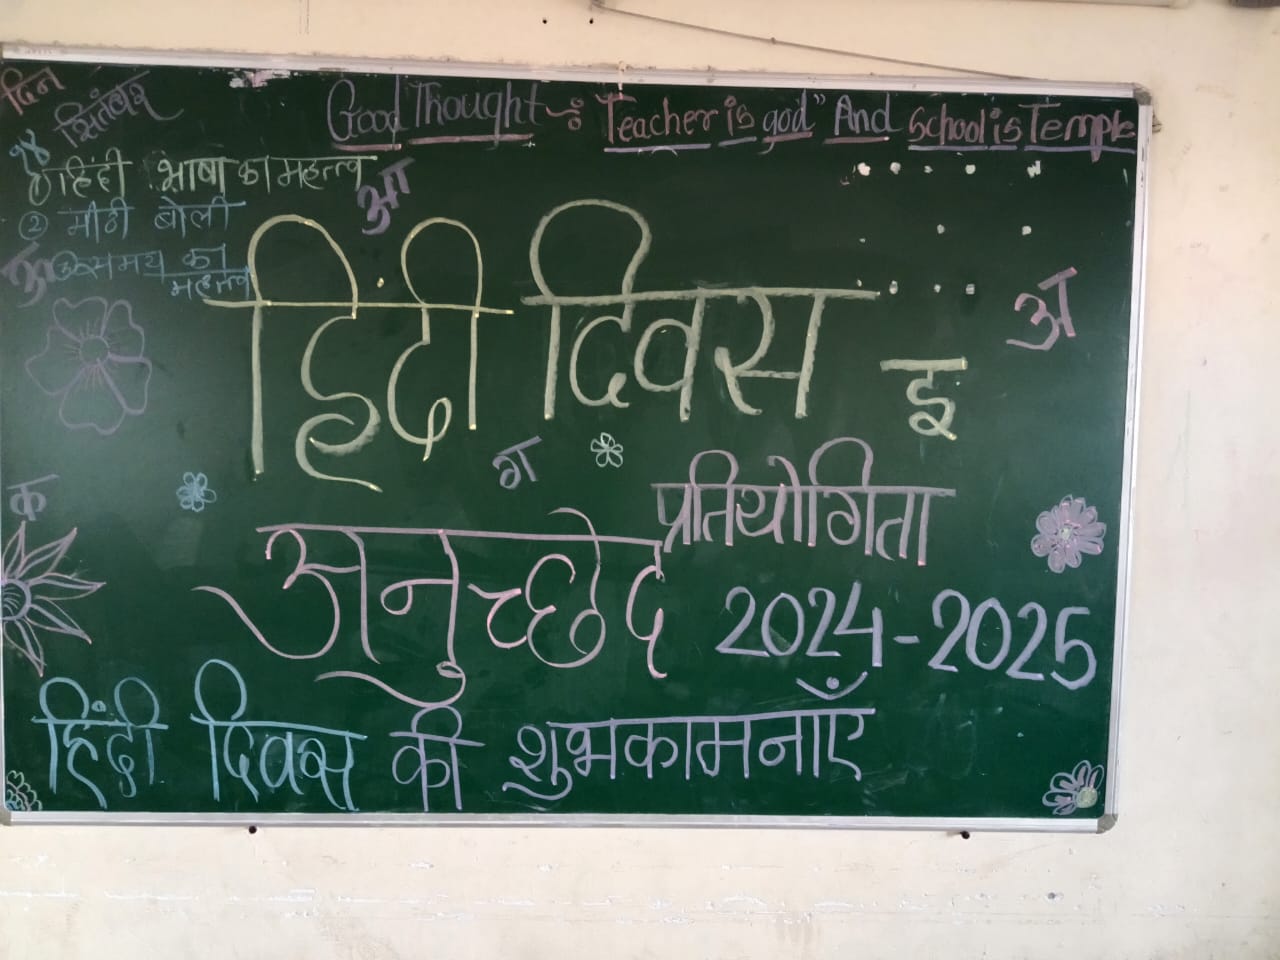 Good Thought -: Teacher is god" And School is Temple
दिन
सितंबर
१४
हिंदी भाषा का महत्त्व
② मीठी बोली
समय का
महत्त्व
आ
हिंदी दिवस
अ
इ
ग
क
प्रतियोगिता
अनुच्छेद 2024-2025
हिंदी दिवस की शुभकामनाएँ